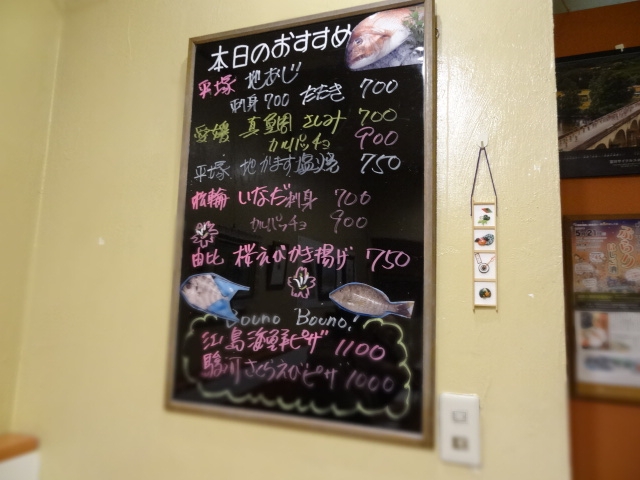 本日のおすすめ
平塚 地あじ
刺身 700 たたき 700
愛媛 真鯛 さしみ 700
カルパッチョ 900
平塚 地かます塩焼 750
いなだ刺身 700
カルパッチョ 900
由比 桜えびかき揚げ 750
Bouno Bouno!
江ノ島海鮮ピザ 1100
駿河さくらえびピザ 1000